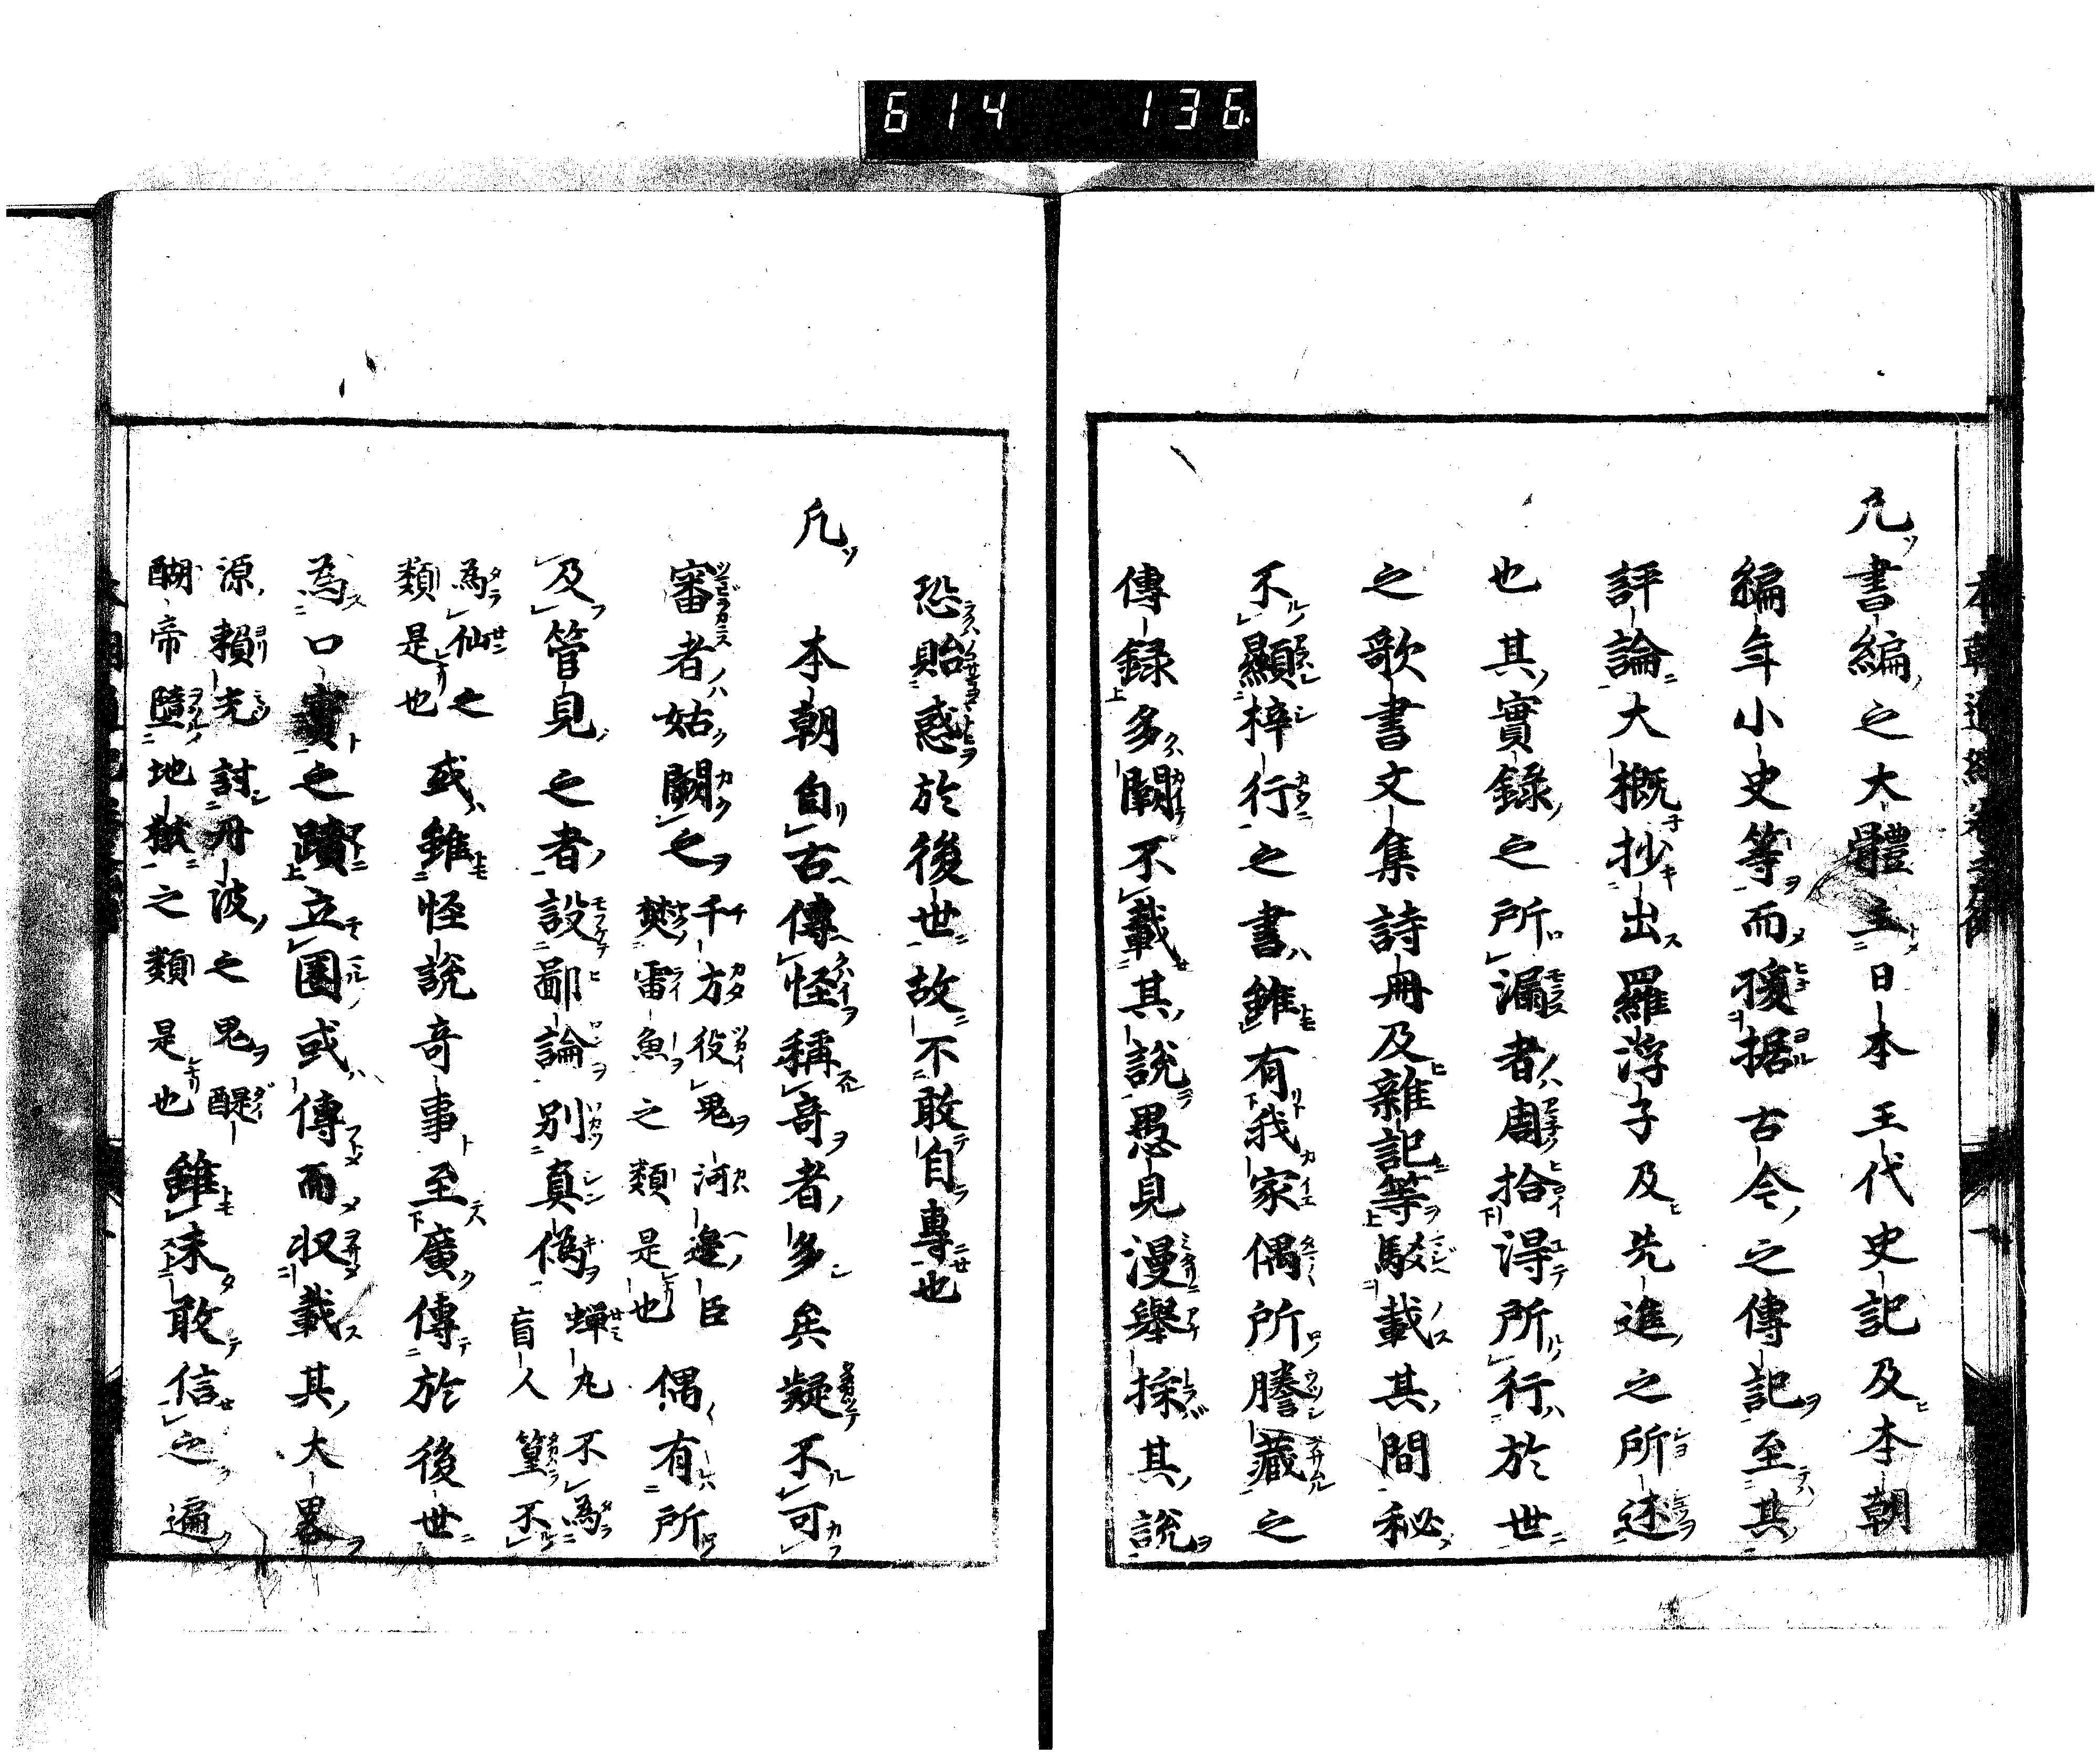 614 136
凢書編之大體主日本王代史記及本朝
編年小史等而援据古今之傳記至其
評論大概抄出羅浮子及先進之所述
也其實錄之所漏者周拾得所行於世
之歌書文集詩冊及雜記等駁載其間秘
不顯梓行之書雖有我家偶所謄藏之
傳録多闕不載其說愚見漫舉採其說
恐貽惑於後世故不敢自專也
凢本朝自古傳怪稱奇者多矣疑不可
審者姑闕之
千方役鬼河邊臣
樊雷魚之類是也
偶有所
及管見之者設鄙論別真偽
蟬丸不爲
盲人篁不
爲仙之
類是也
或雖怪説奇事至廣傳於後世
為口實之蹟立圏或傳而収載其大畧
源頼光討丹波之鬼醍
醐帝墮地獄之類是也
雖未敢信之遍